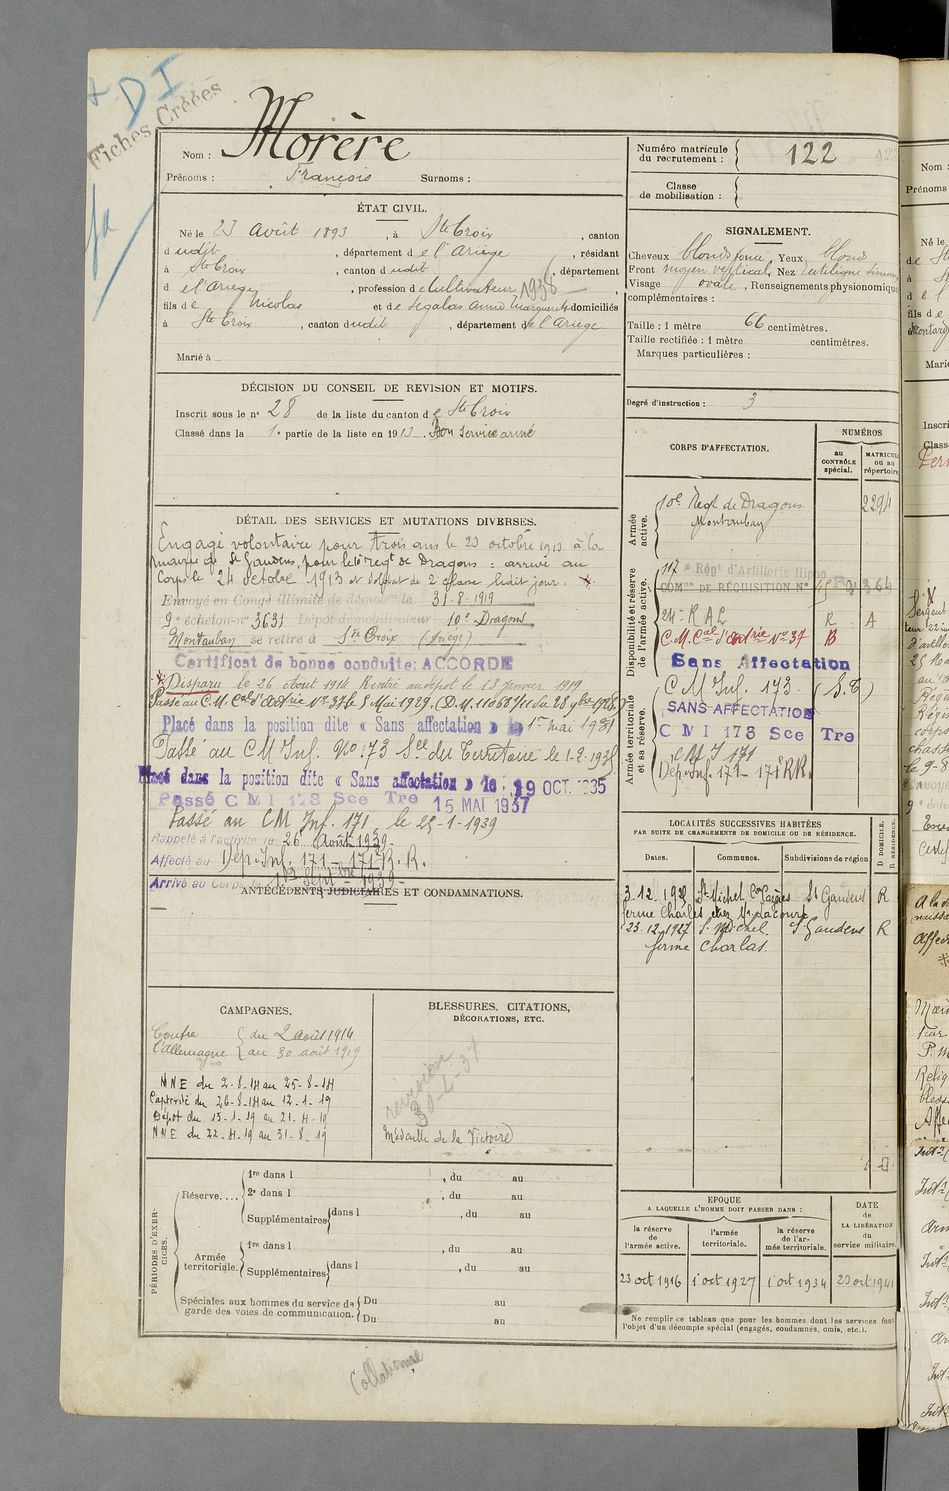 + DI
Fiches Créées
Nom : Morère
Prénoms : François Surnoms :
Numéro matricule du recrutement : 122
Classe de mobilisation :
ÉTAT CIVIL.
Né le 23 Août 1893, à Ste Croix, canton
dudit, département de l'Ariège, résidant
à Ste Croix, canton dudit, département
de l'Ariège, profession de cultivateur 1936
fils de Nicolas et de Segalas Anne Marguerite domiciliés
à Ste Croix, canton dudit, département de l'Ariège
Marié à
SIGNALEMENT.
Cheveux blonds foncé, Yeux blond
Front moyen vertical, Nez rectiligne
Visage ovale, Renseignements physionomiques
complémentaires :
Taille : 1 mètre 66 centimètres.
Taille rectifiée : 1 mètre centimètres.
Marques particulières :
Degré d'instruction : 3
DÉCISION DU CONSEIL DE REVISION ET MOTIFS.
Inscrit sous le n° 28 de la liste du canton de Ste Croix
Classé dans la 1e partie de la liste en 1913. Bon service armé
DÉTAIL DES SERVICES ET MUTATIONS DIVERSES.
Engagé volontaire pour trois ans le 23 octobre 1913 à la
mairie de St Gaudens, pour le 10e Regt de Dragons : arrivé au
Corps le 24 octobre 1913 et soldat de 2e classe ledit jour.
Envoyé en Congé illimité de démob. le 31-8-1919
9e échelon-n° 3631 Dépôt démobilisateur 10e Dragons
Montauban se retire à Ste Croix (Ariège)
Certificat de bonne conduite: ACCORDÉ
Disparu le 26 Août 1914 Rentré au dépôt le 13 Janvier 1919
Passé au C.M. Cal d'Artrie N° 37 le 5 Mai 1929. (D.M. 11068 1/11 du 28 9bre 1928)
Placé dans la position dite « Sans affectation » le 1er mai 1931
Passé au CM Inf. No. 173 Sce du Territoire le 1-2-1935
Placé dans la position dite « Sans affectation » le 19 OCT. 1935
Passé C M I 173 Sce Tre 15 MAI 1937
Passé au CM Inf. 171 le 25-1-1939
Rappelé à l'activité le 26 Août 1939.
Affecté au Dép. Inf. 171 - 171e R.R.
Arrivé au Corps le 1er Septbre 1939.
CORPS D'AFFECTATION.
NUMÉROS
au CONTRÔLE spécial.
MATRICULE ou au répertoire
Armée active.
10e Regt de Dragons 2294
Montauban
Disponibilité et réserve de l'armée active.
117e Régt d'Artillerie Hippo
COMon DE RÉQUISITION N°
24e R A L R A
C.M. Cal d'Artrie N° 37 B
Sans Affectation
Armée territoriale et sa réserve.
C M Inf. 173 (S.T.)
SANS AFFECTATION
C M I 173 Sce Tre
C M I 171
Dép. Inf. 171 - 171e RR.
LOCALITÉS SUCCESSIVES HABITÉES
PAR SUITE DE CHANGEMENTS DE DOMICILE OU DE RÉSIDENCE.
Dates. Communes. Subdivisions de région
D. DOMICILE. R. RÉSIDENCE.
St Michel St Gaudens R
23.12.1927 St Michel St Gaudens R
ferme Charlas.
ANTÉCÉDENTS JUDICIAIRES ET CONDAMNATIONS.
CAMPAGNES.
Contre l'Allemagne
du 2 Août 1914
au 30 août 1919
NNE du 2-8-14 au 25-8-14
Captivité du 26-8-14 au 12-1-19
Dépôt du 13-1-19 au 21-4-19
NNE du 22-4-19 au 31-8-19
BLESSURES, CITATIONS,
DÉCORATIONS, ETC.
revision
30-4-31
Médaille de la Victoire
PÉRIODES D'EXERCICES.
Réserve....
1re dans l , du au
2e dans l , du au
Supplémentaires dans l , du au
Armée territoriale.
1re dans l , du au
Supplémentaires dans l , du au
Spéciales aux hommes du service de garde des voies de communication.
Du au
Du au
EPOQUE
A LAQUELLE L'HOMME DOIT PASSER DANS :
la réserve de l'armée active.
l'armée territoriale.
la réserve de l'armée territoriale.
DATE de LA LIBÉRATION du service militaire.
23 oct 1916 1 oct 1927 1 oct 1934 23 oct 1941
Ne remplir ce tableau que pour les hommes dont les services font
l'objet d'un décompte spécial (engagés, condamnés, omis, etc.).
Collationné